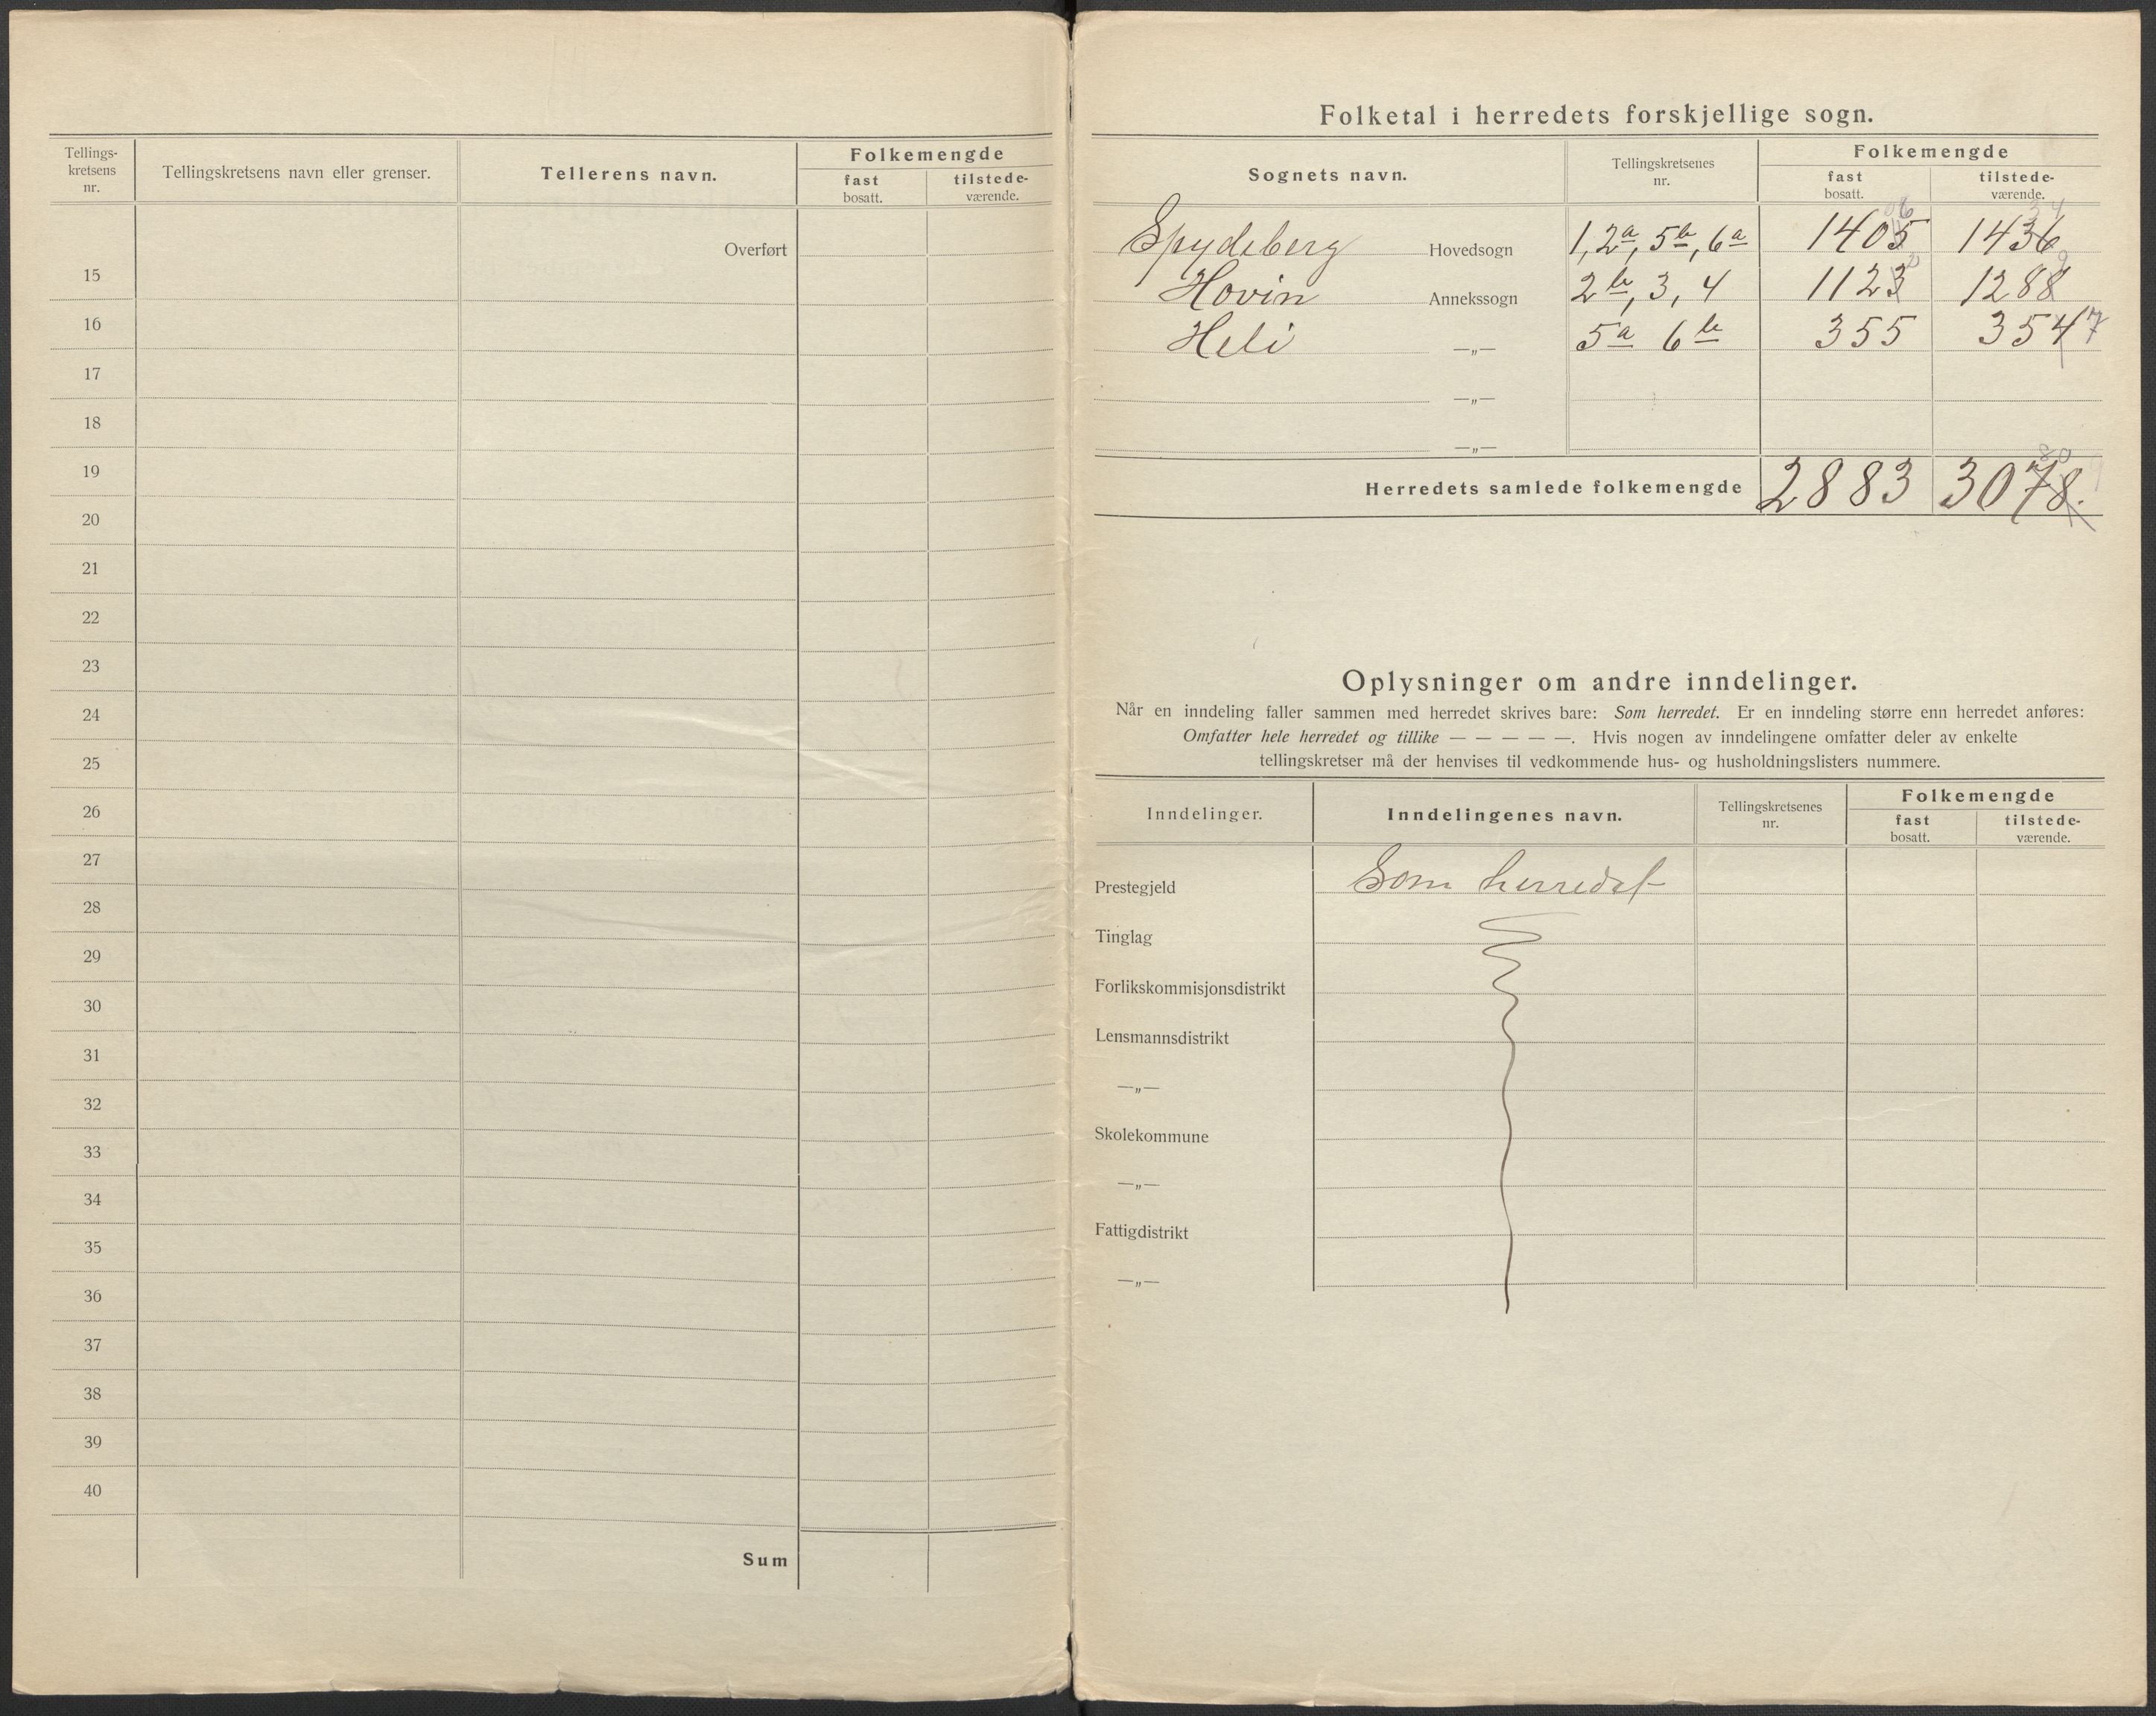 Tellings-
kretsens
nr.
Tellingskretsens navn eller grenser.
Tellerens navn.
Folkemengde
fast
bosatt.
tilstede-
værende.
Overført
15
16
17
18
19
20
21
22
23
24
25
26
27
28
29
30
31
32
33
34
35
36
37
38
39
40
Sum
Folketal i herredets forskjellige sogn.
Sognets navn.
Tellingskretsenes
nr.
Folkemengde
fast
bosatt.
tilstede-
værende.
Spydeberg Hovedsogn 1, 2a, 5b, 6a 1405 1436
Hovin Annekssogn 2b, 3, 4 1123 1288
Heli —„— 5a 6b 355 354 7
—„—
—„—
80
Herredets samlede folkemengde 2883 3078.
Oplysninger om andre inndelinger.
Når en inndeling faller sammen med herredet skrives bare: Som herredet. Er en inndeling større enn herredet anføres:
Omfatter hele herredet og tillike — — — — —. Hvis nogen av inndelingene omfatter deler av enkelte
tellingskretser må der henvises til vedkommende hus- og husholdningslisters nummere.
Inndelinger.
Inndelingenes navn.
Tellingskretsenes
nr.
Folkemengde
fast
bosatt.
tilstede-
værende.
Prestegjeld Som herredet
Tinglag
Forlikskommisjonsdistrikt
Lensmannsdistrikt
—„—
Skolekommune
—„—
Fattigdistrikt
—„—